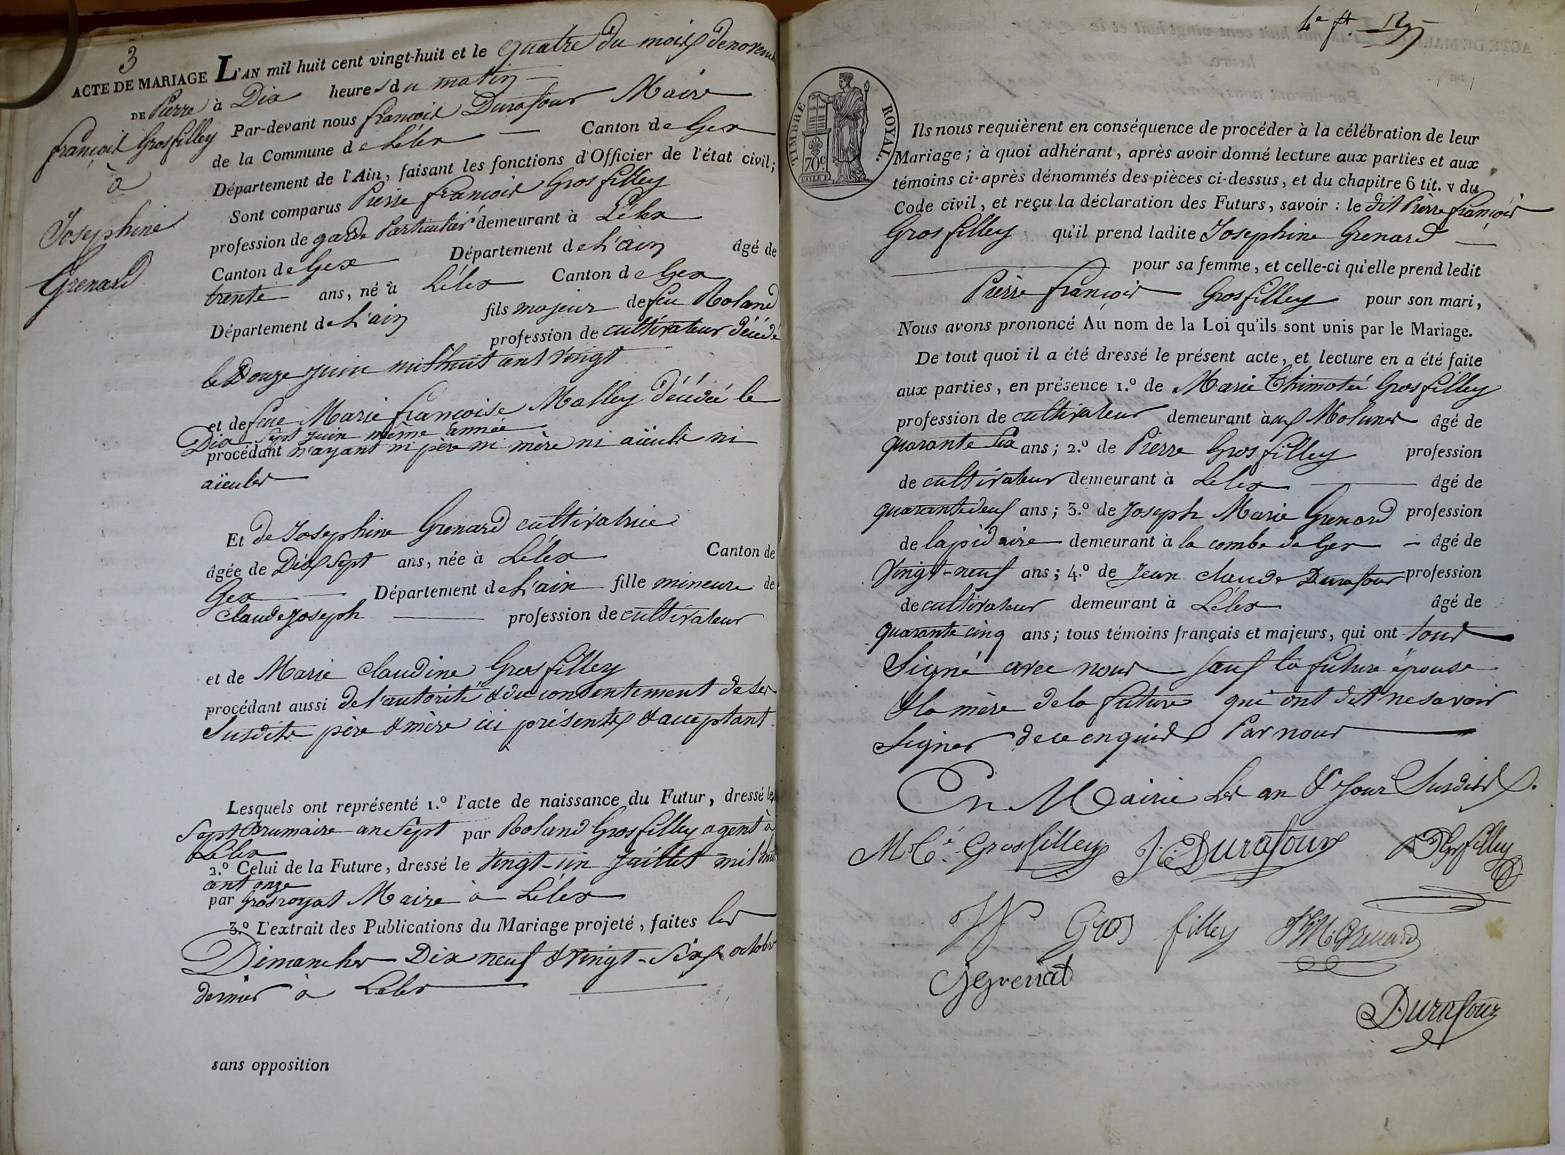 3
ACTE DE MARIAGE
DE Pierre
françois Grosfilley
à
Josephine
Grenard
L'AN mil huit cent vingt-huit et le quatre du mois de novem
à Dix heures du matin
Par-devant nous françois Durafour Maire
de la Commune de Lélex Canton de Gex
Département de l'Ain, faisant les fonctions d'Officier de l'état civil;
Sont comparus Pierre françois Grosfilley
profession de garde Particulier demeurant à Lélex
Canton de Gex Département de L'ain âgé de
trente ans, né à Lélex Canton de Gex
Département de L'ain fils majeur de feu Roland
profession de cultivateur décédé
le Douze juin mil huit cent vingt
et de feue Marie françoise Malley décédée le
Dix sept juin même année
procédant n'ayant ni père ni mère ni aïeuls ni
aïeules
Et de Josephine Grenard cultivatrice
âgée de Dix sept ans, née à Lélex Canton de
Gex Département de L'ain fille mineure de
Claude Joseph profession de cultivateur
et de Marie Claudine Grosfilley
procédant aussi de l'autorité & du consentement de ses
susdits père & mère ici présents & acceptant
Lesquels ont représenté 1.º l'acte de naissance du Futur, dressé le
Sept Brumaire an Sept par Roland Grosfilley agent à
Lélex
2.º Celui de la Future, dressé le vingt-un Juillet mil huit
cent onze
par grosroyat Maire à Lélex
3.º L'extrait des Publications du Mariage projeté, faites les
Dimanches Dix neuf & vingt-Six octobre
dernier à Lélex
sans opposition
TIMBRE ROYAL
70c
Ils nous requièrent en conséquence de procéder à la célébration de leur
Mariage; à quoi adhérant, après avoir donné lecture aux parties et aux
témoins ci-après dénommés des pièces ci-dessus, et du chapitre 6 tit. v du
Code civil, et reçu la déclaration des Futurs, savoir: le dit Pierre françois
Grosfilley qu'il prend ladite Josephine Grenard
pour sa femme, et celle-ci qu'elle prend ledit
Pierre françois Grosfilley pour son mari,
Nous avons prononcé Au nom de la Loi qu'ils sont unis par le Mariage.
De tout quoi il a été dressé le présent acte, et lecture en a été faite
aux parties, en présence 1.º de Marie Thimoté Grosfilley
profession de cultivateur demeurant aux Molunes âgé de
quarante six ans; 2.º de Pierre Grosfilley profession
de cultivateur demeurant à Lélex âgé de
quarante deux ans; 3.º de Joseph Marie Grenard profession
de lapidaire demeurant à la combe de Gex âgé de
Vingt-neuf ans; 4.º de Jean Claude Durafour profession
de cultivateur demeurant à Lélex âgé de
quarante cinq ans; tous témoins français et majeurs, qui ont tous
Signé avec nous sauf la future épouse
& la mère de la future qui ont dit ne savoir
signer de ce enquises Par nous
En Mairie les an & Jour Susdits.
M. Cé. Grosfilley J C Durafour Grosfilley
Gros filley J M. Grenard
Durafour